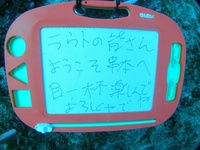 うらトの皆さん
ようこそ串本へ
目一杯楽しんで
よろしくで